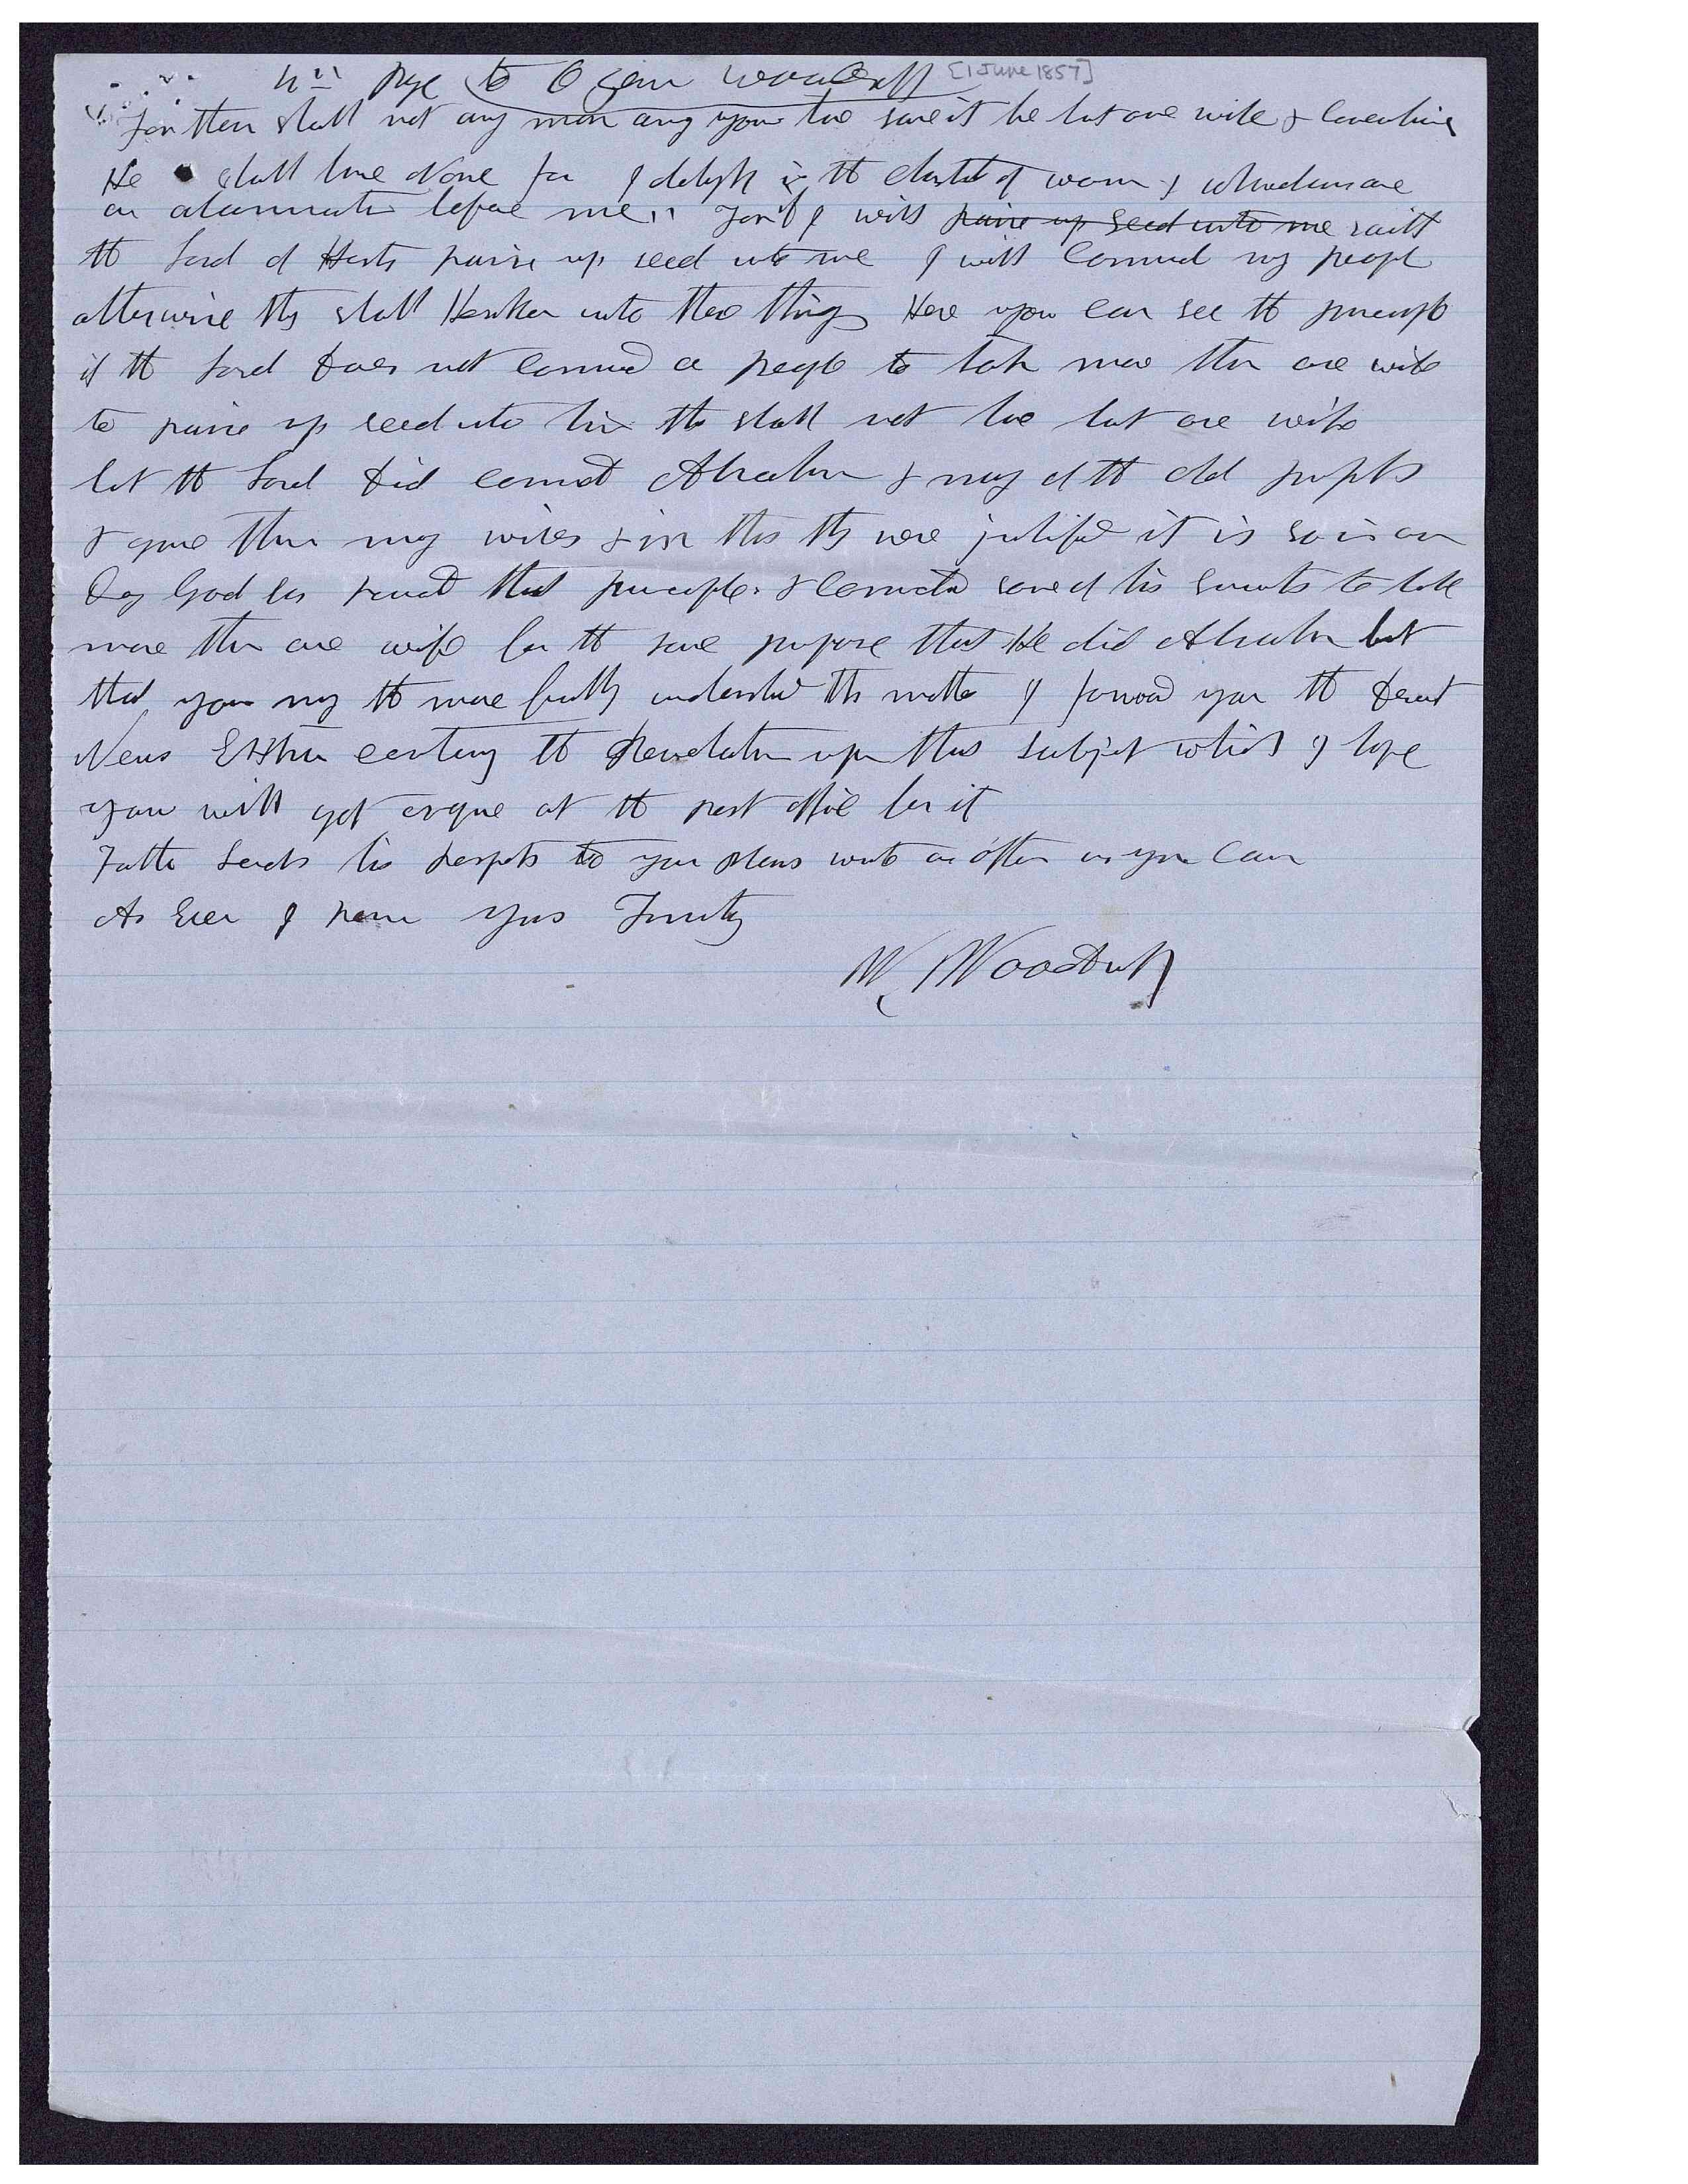 4th page to Ozem Woodruff [1 June 1857]
"For there shall not any man among you have save it be but one wife & Concubines
He shall have None for I delight in the chastity of women & whoredoms are
an abomination before me" For if I will raise up seed unto me saith
the Lord of Hosts raise up seed unto me I will Command my people
otherwise they shall Hearken unto these things Here you can see the principle
if the Lord does not command a people to take more than one wife
to raise up seed unto him they shall not have but one wife
but the Lord did command Abraham & many of the old prophets
& gave them many wives & in this they were justified it is so in our
Day God has revealed that principle & commanded some of his servants to take
more than one wife for the same purpose that He did Abraham but
that you may the more fully understand this matter I forward you the Deseret
News Extra containing the Revelation upon this subject which I hope
you will get enquire at the post office for it
Father sends his respects to you please write as often as you can
As Ever I remain yours Truly
W. Woodruff